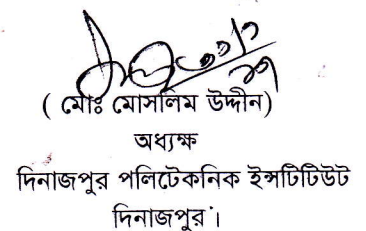 ( মোঃ মোসলিম উদ্দীন)
অধ্যক্ষ
দিনাজপুর পলিটেকনিক ইন্সটিটিউট
দিনাজপুর।